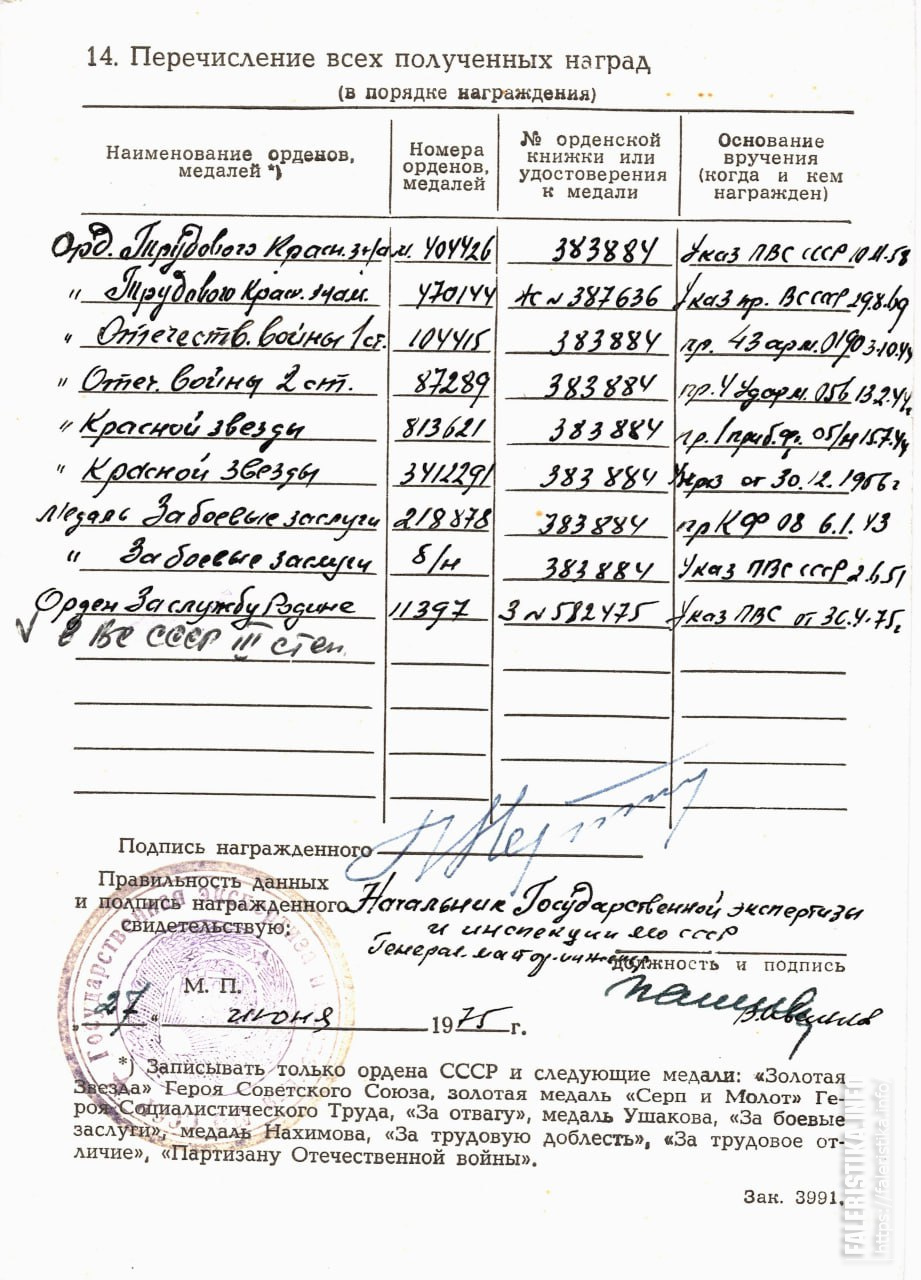 14. Перечисление всех полученных наград
(в порядке награждения)
Наименование орденов, медалей *)
Номера орденов, медалей
№ орденской книжки или удостоверения к медали
Основание вручения (когда и кем награжден)
Орд. Трудового Красн. знам. 404426 383884 Указ ПВС СССР
" Трудового Крас. знам. 470144 Ж № 387636 Указ пр. ВС СССР 29.8.69
" Отечеств. войны 1 ст. 104415 383884 пр. 43 арм. 0190 3.10.44
" Отеч. войны 2 ст. 87289 383884 пр. 4 Уд арм. 056 13.2.44г
" Красной звезды 813621 383884 пр. 1 приб. ф. 05/н 15.7.44
" Красной звезды 3412291 383884 от 30.12.1956г
Медаль За боевые заслуги 218878 383884 пр КФ 08 6.1.43
" За боевые заслуги б/н 383884 Указ ПВС СССР 2.6.51
Орден За службу Родине 11397 З № 582475 Указ ПВС от 30.4.75г
в ВС СССР III степ.
Подпись награжденного
Правильность данных
и подпись награжденного Начальник Государственной экспертизы
свидетельствую: и инспекции МО СССР
Генерал-майор-инженер
должность и подпись
М. П.
„27" июня 1975 г.
Государственная экспертиза и
*) Записывать только ордена СССР и следующие медали: «Золотая
Звезда» Героя Советского Союза, золотая медаль «Серп и Молот» Ге-
роя Социалистического Труда, «За отвагу», медаль Ушакова, «За боевые
заслуги», медаль Нахимова, «За трудовую доблесть», «За трудовое от-
личие», «Партизану Отечественной войны».
Зак. 3991.
FALERISTIKA.INFO
https://faleristika.info